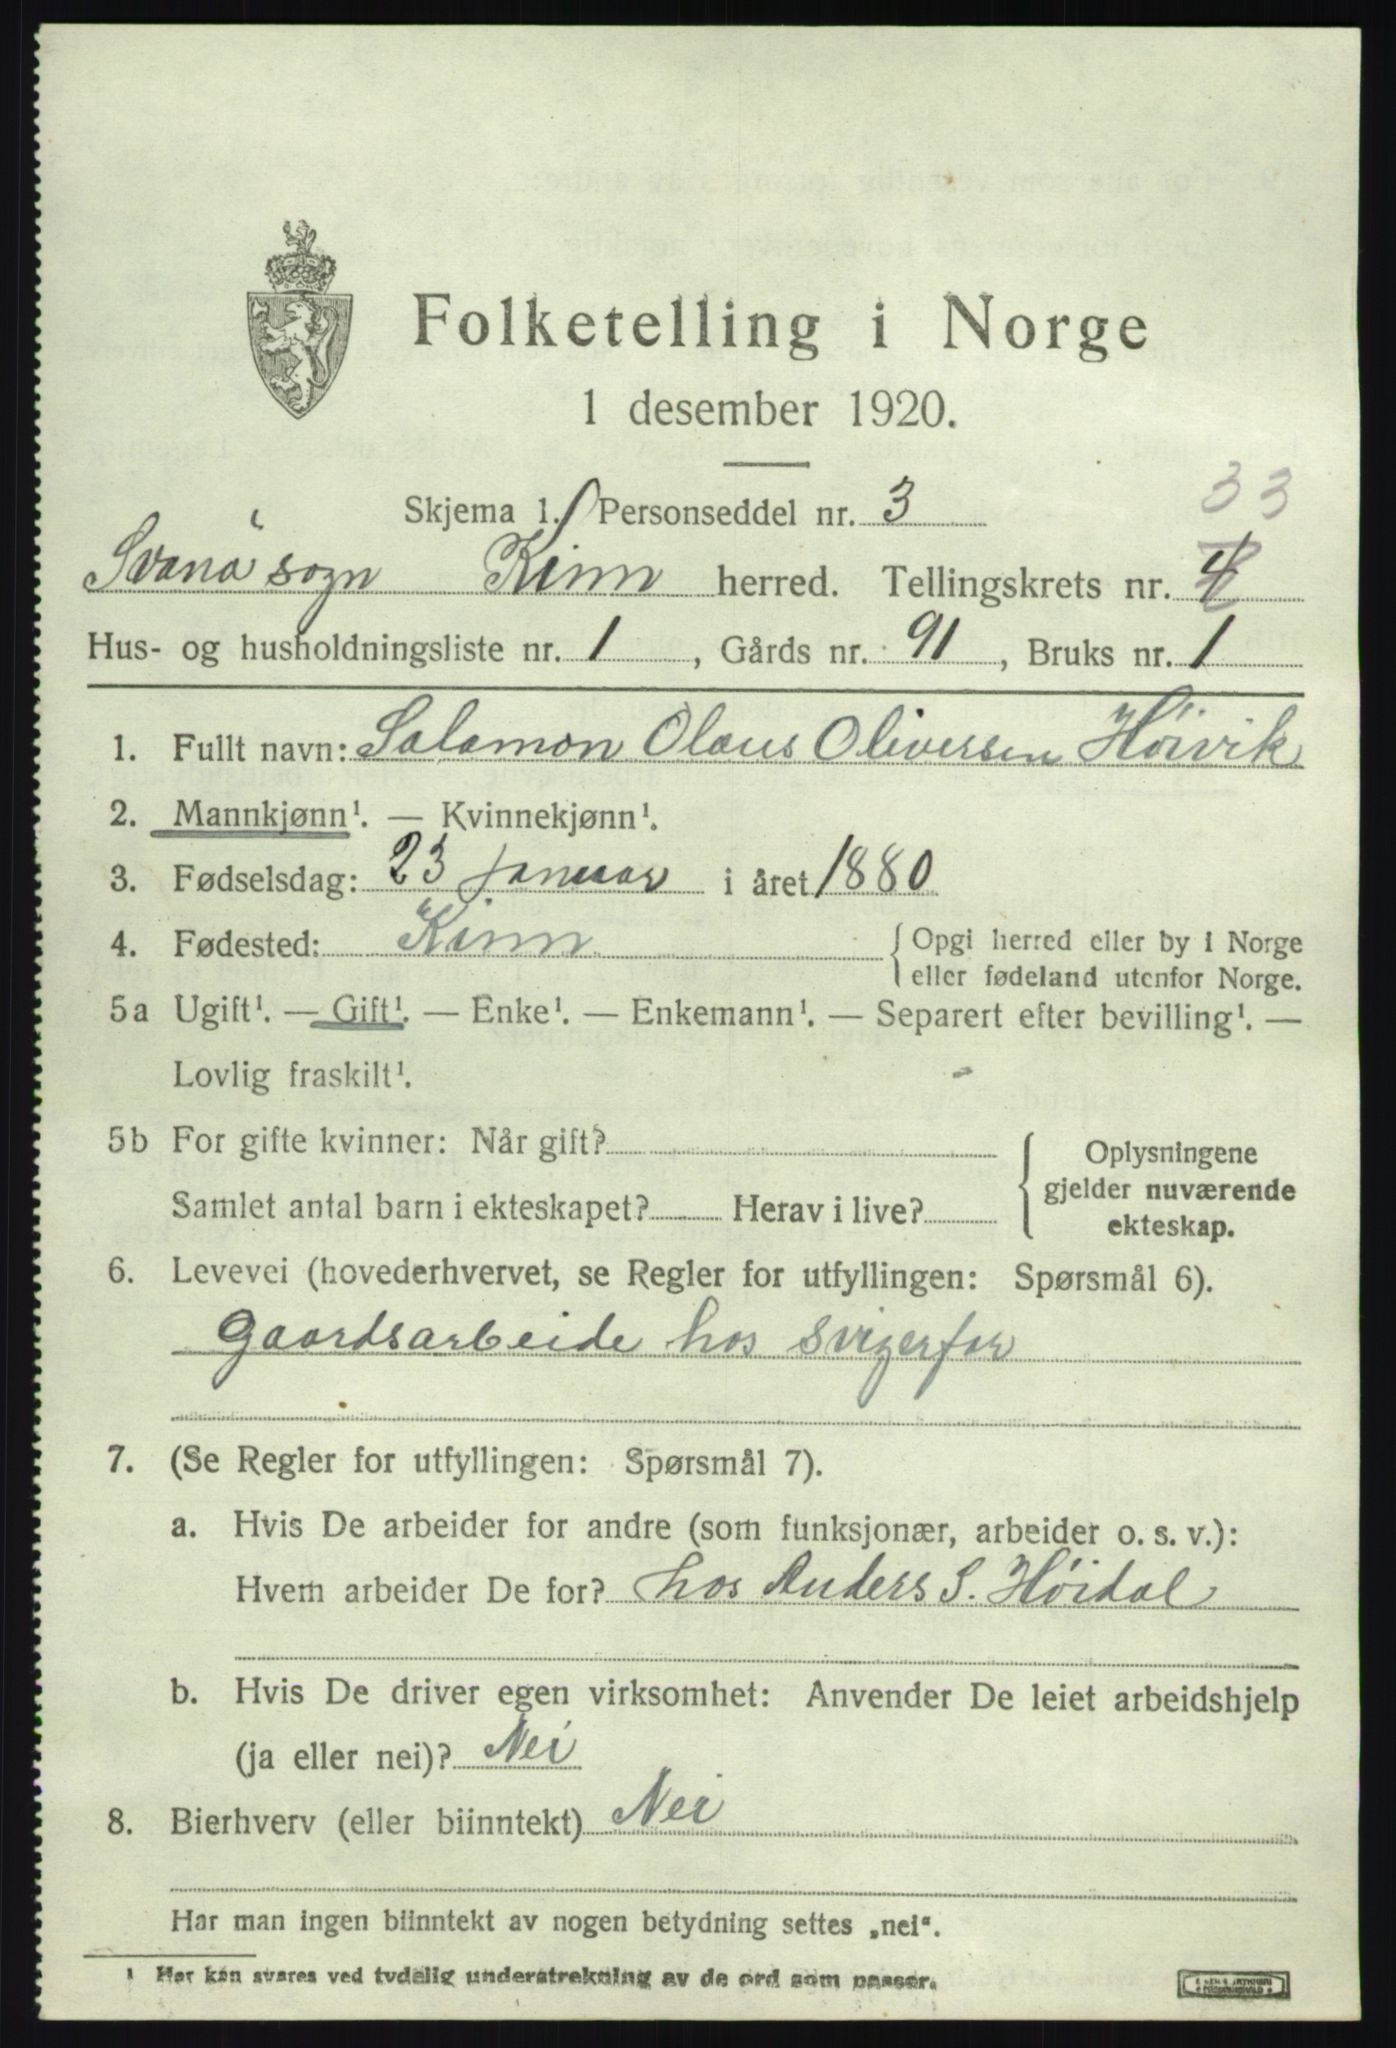 Folketelling i Norge
1 desember 1920.
Skjema 1. Personseddel nr. 3
33
Svanö sogn Kinn herred. Tellingskrets nr. 4
Hus- og husholdningsliste nr. 1, Gårds nr. 91, Bruks nr. 1
1. Fullt navn: Salamon Olaus Oliversen Höivik
2. Mannkjønn¹. — Kvinnekjønn¹.
3. Fødselsdag: 23 januar i året 1880
4. Fødested: Kinn { Opgi herred eller by i Norge
eller fødeland utenfor Norge.
5a Ugift¹. — Gift¹. — Enke¹. — Enkemann¹. — Separert efter bevilling¹. —
Lovlig fraskilt¹.
5b For gifte kvinner: Når gift?
Samlet antal barn i ekteskapet? Herav i live?
{ Oplysningene
gjelder nuværende
ekteskap.
6. Levevei (hovederhvervet, se Regler for utfyllingen: Spørsmål 6).
Gaardsarbeide hos svigerfar
7. (Se Regler for utfyllingen: Spørsmål 7).
a. Hvis De arbeider for andre (som funksjonær, arbeider o. s. v.):
Hvem arbeider De for? hos Anders S. Höidal
b. Hvis De driver egen virksomhet: Anvender De leiet arbeidshjelp
(ja eller nei)? Nei
8. Bierhverv (eller biinntekt) Nei
Har man ingen biinntekt av nogen betydning settes „nei“.
¹ Her kan svares ved tydelig understrekning av de ord som passer.